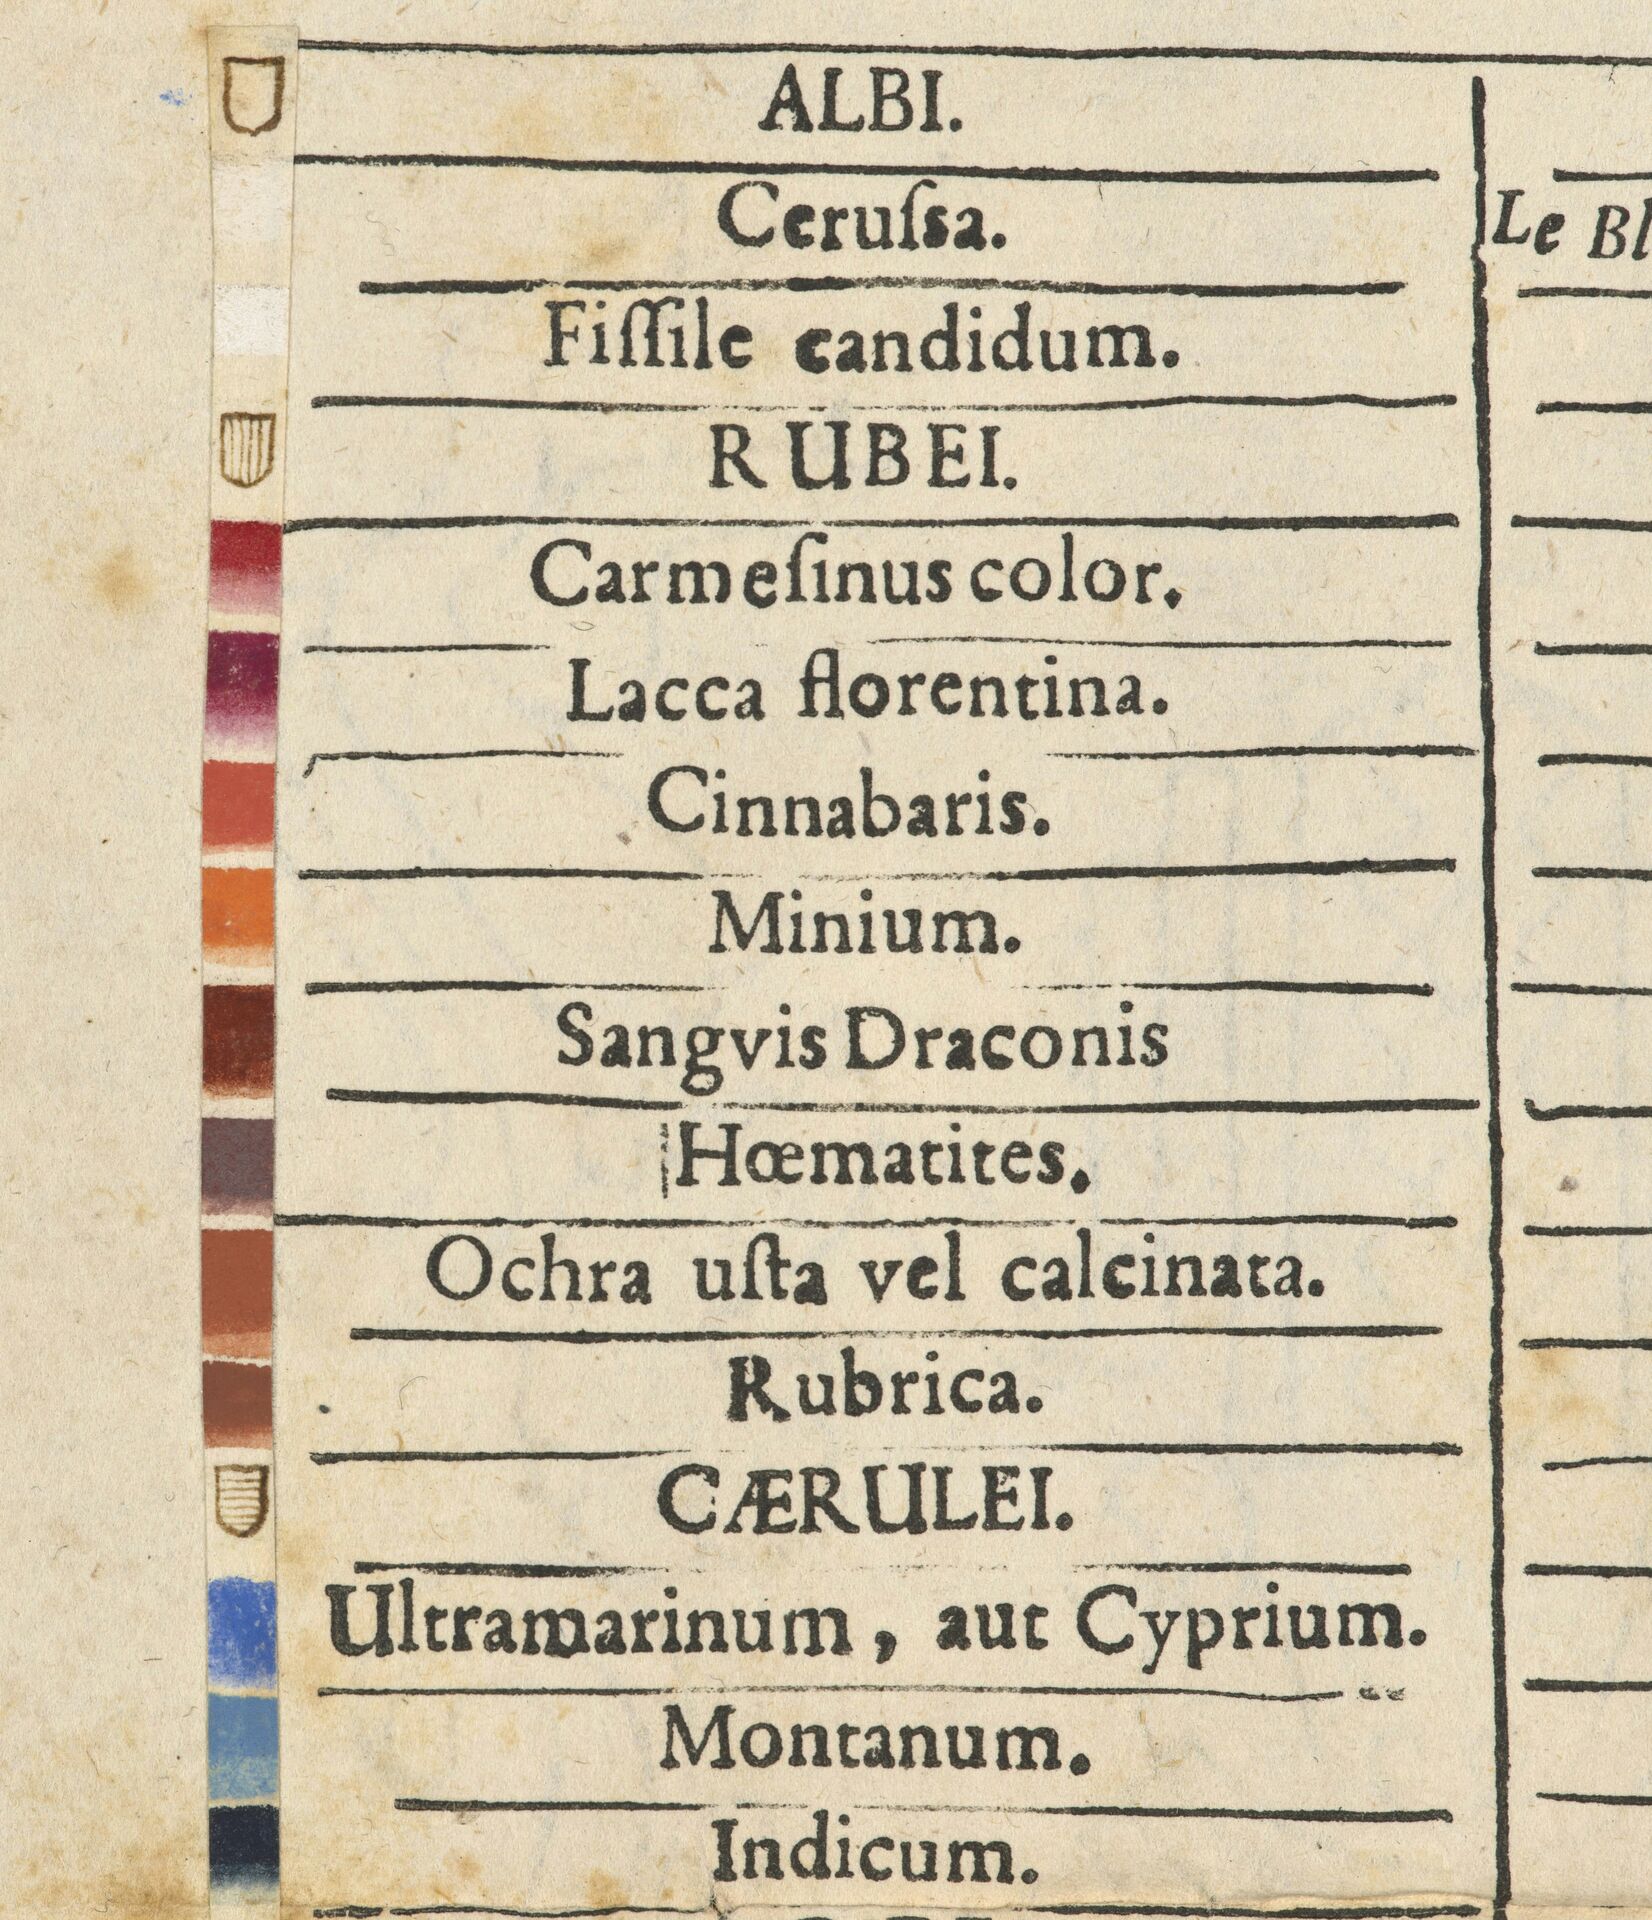 ALBI.
Ceruſsa.
Le Bl
Fiſſile candidum.
RUBEI.
Carmeſinus color.
Lacca florentina.
Cinnabaris.
Minium.
Sangvis Draconis
Hœmatites.
Ochra uſta vel calcinata.
Rubrica.
CÆRULEI.
Ultramarinum, aut Cyprium.
Montanum.
Indicum.